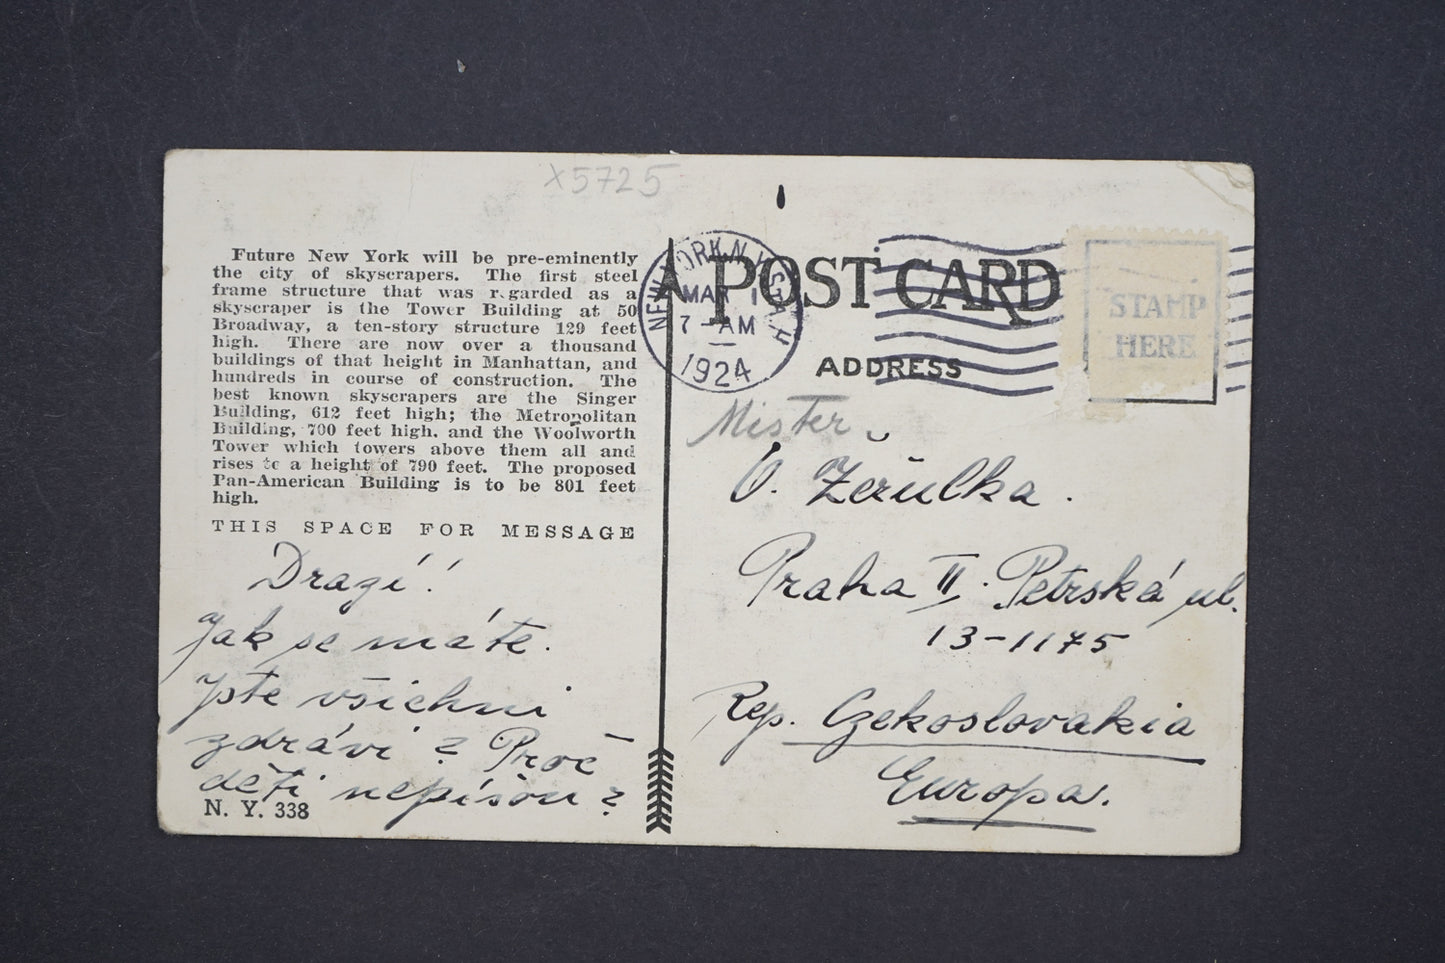 x5725
Future New York will be pre-eminently
the city of skyscrapers. The first steel
frame structure that was regarded as a
skyscraper is the Tower Building at 50
Broadway, a ten-story structure 129 feet
high. There are now over a thousand
buildings of that height in Manhattan, and
hundreds in course of construction. The
best known skyscrapers are the Singer
Building, 612 feet high; the Metropolitan
Building, 700 feet high, and the Woolworth
Tower which towers above them all and
rises to a height of 790 feet. The proposed
Pan-American Building is to be 801 feet
high.
THIS SPACE FOR MESSAGE
Drazí!
Jak se máte.
Jste všichni
zdrávi? Proč
děti nepíšou?
N. Y. 338
NEW YORK, N.Y. STA.
MAR 1
7-AM
1924
POST CARD
ADDRESS
STAMP
HERE
Mister
Žerulka.
Praha II. Petrská ul.
13-1175
Rep. Czekoslovakia
Europa.